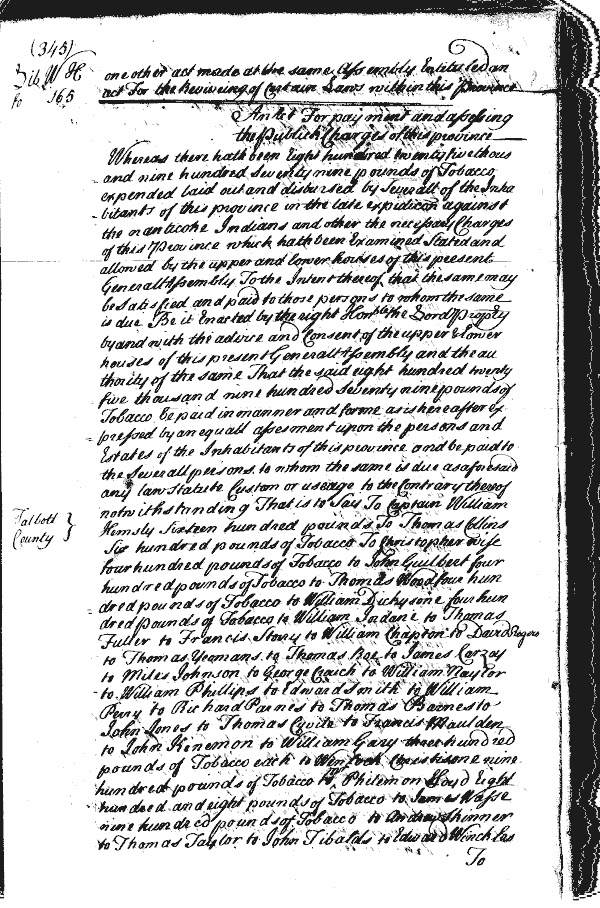 (345)
Lib W H
fo 165
one other act made at the same Assembly Entituled an
act For the Reviveing of Certain Laws within this Province
An Act For payment and assessing
the publick Charges of this province
Whereas there hath been Eight hundred twenty five thous
and nine hundred seventy nine pounds of Tobacco
expended laid out and disbursed by Severall of the Inha
bitants of this province in the late expidicon against
the nanticoke Indians and other the necessary Charges
of this Province which hath been Examined Stated and
allowed by the upper and lower houses of this present
Generall Assembly To the Intent thereof that the same may
be Satisfied and paid to those persons to whom the same
is due Be it Enacted by the right Honble the Lord Propry
by and with the advice and Consent of the upper & Lower
houses of this present Generall Assembly and the au
thority of the same That the said eight hundred twenty
five thousand nine hundred seventy nine pounds of
Tobacco be paid in manner and forme as is hereafter ex
pressed by an equall assesment upon the persons and
Estates of the Inhabitants of this province and be paid to
the Severall persons to whom the same is due as aforesaid
any law Statute Custom or useage to the Contrary thereof
notwithstanding That is to Say To Captain William
Talbott
County }
Hemsly Sixteen hundred pounds To Thomas Collins
Six hundred pounds of Tobacco To Christopher Wise
four hundred pounds of Tobacco to John Guilbert four
hundred pounds of Tobacco to Thomas Woodfour hun
dred pounds of Tobacco to William Dickysone four hun
dred pounds of Tobacco to William to Thomas
Fuller to Francis Story to William Chapton to David Rogers
to Thomas Yeomans to Thomas Roe to James
to Miles Johnson to George to William Naylor
to William Phillips to Edward Smith to William
Perry to Richard Parnes to Thomas Barnes to
John Jones to Thomas to Francis Maulden
to John Kenemon to William Gary three hundred
pounds of Tobacco each to Winlock Christisone nine
hundred pounds of Tobacco to Philemon Lloyd Eight
hundred and eight pounds of Tobacco to James Wasse
nine hundred pounds of Tobacco to Andrew Skinner
to Thomas Taylor to John Tibalds to Edward
To